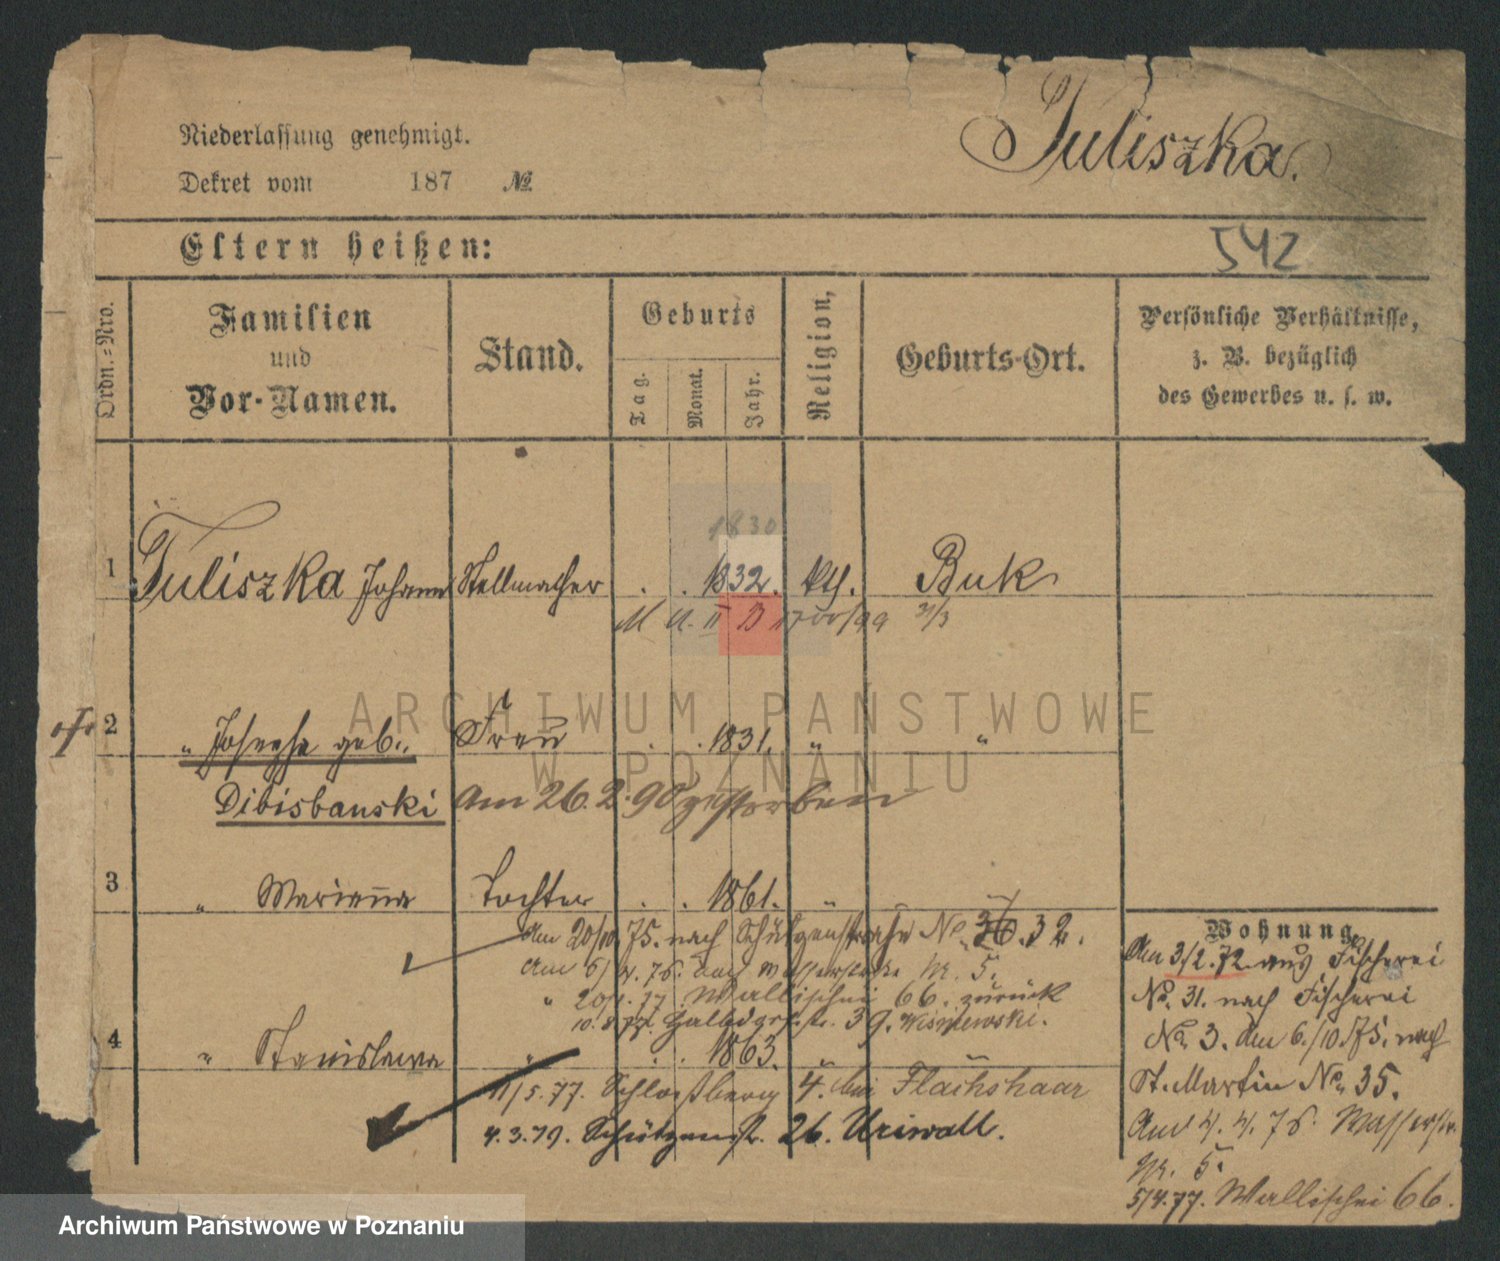 Tuliszka.
Niederlassung genehmigt.
Dekret vom 187 №
Eltern heißen:
542
Ordn.=Nro.
Familien
und
Vor-Namen.
Stand.
Geburts
Tag.
Monat.
Jahr.
Religion,
Geburts-Ort.
Persönliche Verhältnisse,
z. B. bezüglich
des Gewerbes u. s. w.
1830
1 Tuliszka Johann Stellmacher . . 1832. kth. Buk
2 " Josepha geb. Frau . . 1831. " "
Dibisbanski am 26.2.90 gestorben
3 " Marianna Tochter . . 1861. "
am 20/10. 75. nach Schützenstraße No. 32.
am 5/4. 76. nach Wasserstraße Nr. 5.
" 20/1. 77. Wallischei 66. zurück
39. Wisniewski.
4 " Stanislawa " . . 1863. " "
11/5. 77. Schloßberg 4. bei Flachshaar
4.3.79. Schützenstr. 26. Uriwall.
Wohnung.
Am 3/2. 72. aus Fischerei
No. 31. nach Fischerei
No. 3. am 6./10. 75. nach
St. Martin No. 35.
Am 4. 4. 76. Wasserstr.
Nr. 5.
5/4. 77. Wallischei 66.
ARCHIWUM PAŃSTWOWE
W POZNANIU
Archiwum Państwowe w Poznaniu